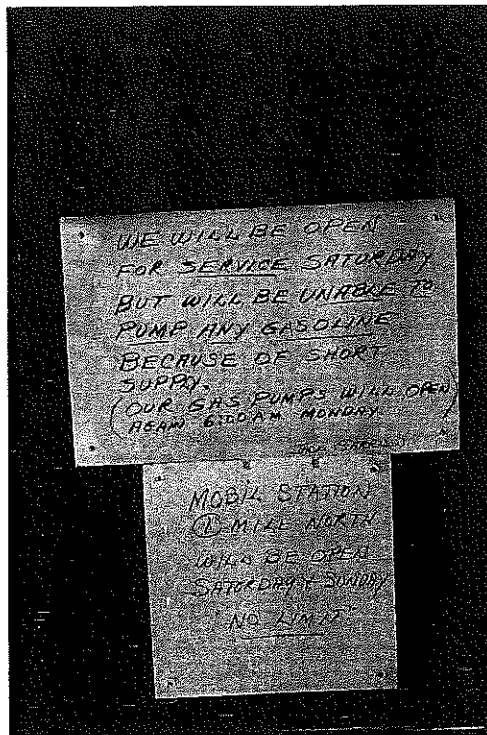 WE WILL BE OPEN
FOR SERVICE SATURDAY
BUT WILL BE UNABLE TO
PUMP ANY GASOLINE
BECAUSE OF SHORT
SUPPLY.
(OUR GAS PUMPS WILL OPEN
AGAIN 6:00 AM MONDAY)
MOBIL STATION
① MILE NORTH
WILL BE OPEN
SATURDAY & SUNDAY
NO LIMIT